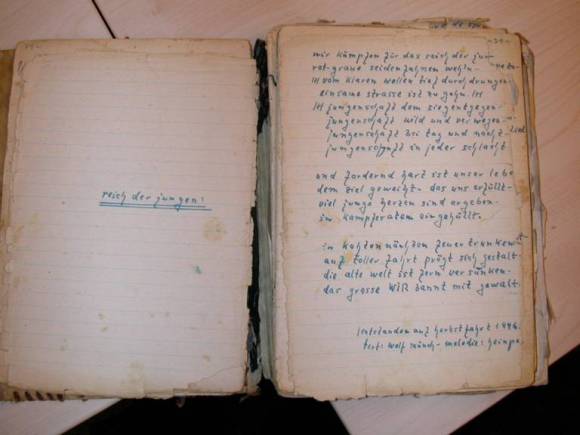 reich der jungen!
wir kämpfen für das reich der jun-
rot-graue seidenfahnen weh'n
|:| vom klaren wollen tief durchdrungen
einsame strasse ist zu gehn |:|
|:| jungenschaft dem sieg entgegen
jungenschaft wild und verwegen
jungenschaft bei tag und nacht
jungenschaft in jeder schlacht
und fordernd hart ist unser lebe
dem ziel geweiht - das uns erfüllt -
viel junge herzen sind ergeben
in kampferatem eingehüllt.
in kohtennächten feuertrunken
auf toller fahrt prägt sich gestalt
die alte welt ist fern versunken -
das grosse WIR bannt mit gewalt.
entstanden auf herbstfahrt 1946
text: wolf münch - melodie: heinpe